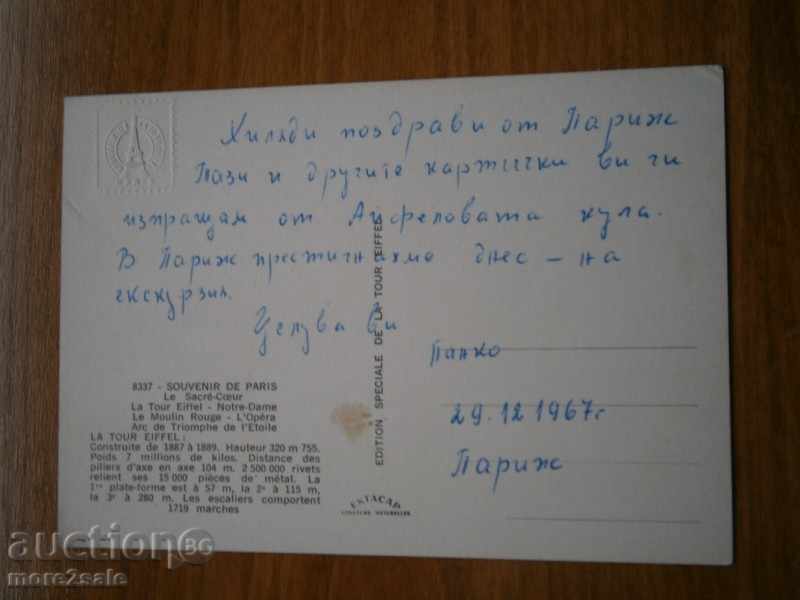 Хиляди поздрави от Париж
Тази и другите картички ви ги
изпращам от Айфеловата кула.
В Париж пристигнахме днес – на
екскурзия.
Целува ви
Панко
29.12.1967г
Париж
8337 - SOUVENIR DE PARIS
Le Sacré-Cœur
La Tour Eiffel - Notre-Dame
Le Moulin Rouge - L'Opéra
Arc de Triomphe de l'Étoile
LA TOUR EIFFEL:
Construite de 1887 à 1889. Hauteur 320 m 755.
Poids 7 millions de kilos. Distance des
piliers d'axe en axe 104 m. 2 500 000 rivets
relient ses 15 000 pièces de métal. La
1re plate-forme est à 57 m, la 2e à 115 m,
la 3e à 280 m. Les escaliers comportent
1719 marches
EDITION SPECIALE DE LA TOUR EIFFEL
ESTACAB
COULEURS NATURELLES
auctionBG
more2sale